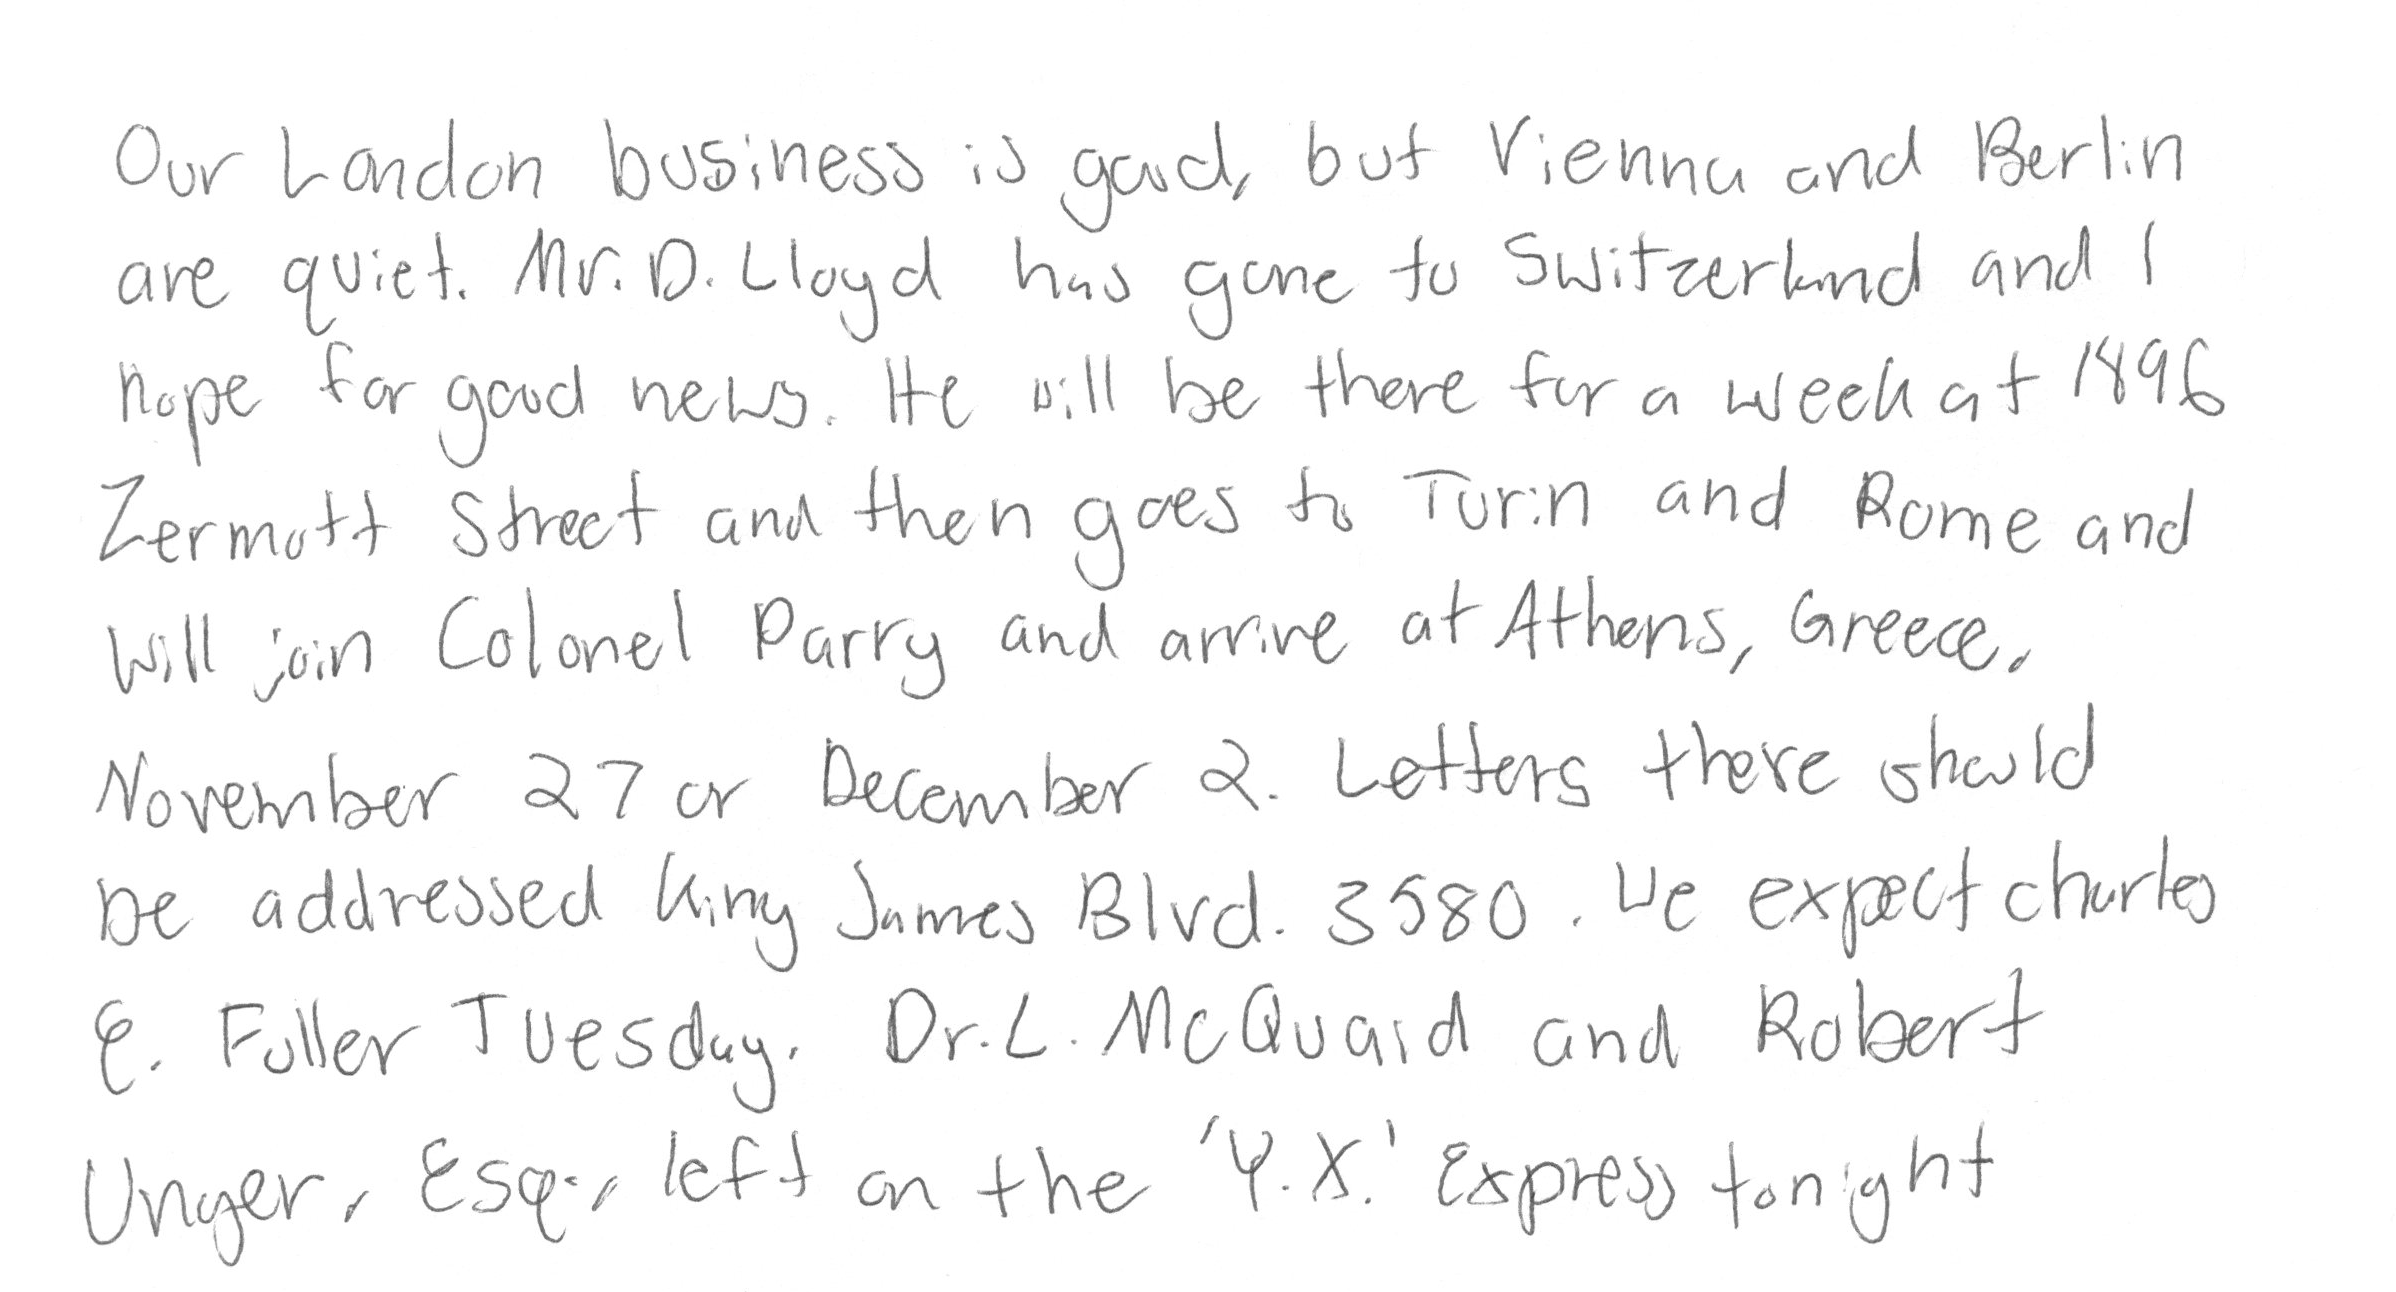 Our London business is good, but Vienna and Berlin
are quiet. Mr. D. Lloyd has gone to Switzerland and I
hope for good news. He will be there for a week at 1496
Zermott Street and then goes to Turin and Rome and
will join Colonel Parry and arrive at Athens, Greece,
November 27 or December 2. Letters there should
be addressed King James Blvd. 3580. We expect Charles
E. Fuller Tuesday. Dr. L. McQuaid and Robert
Unger, Esq., left on the 'Y.X.' Express tonight